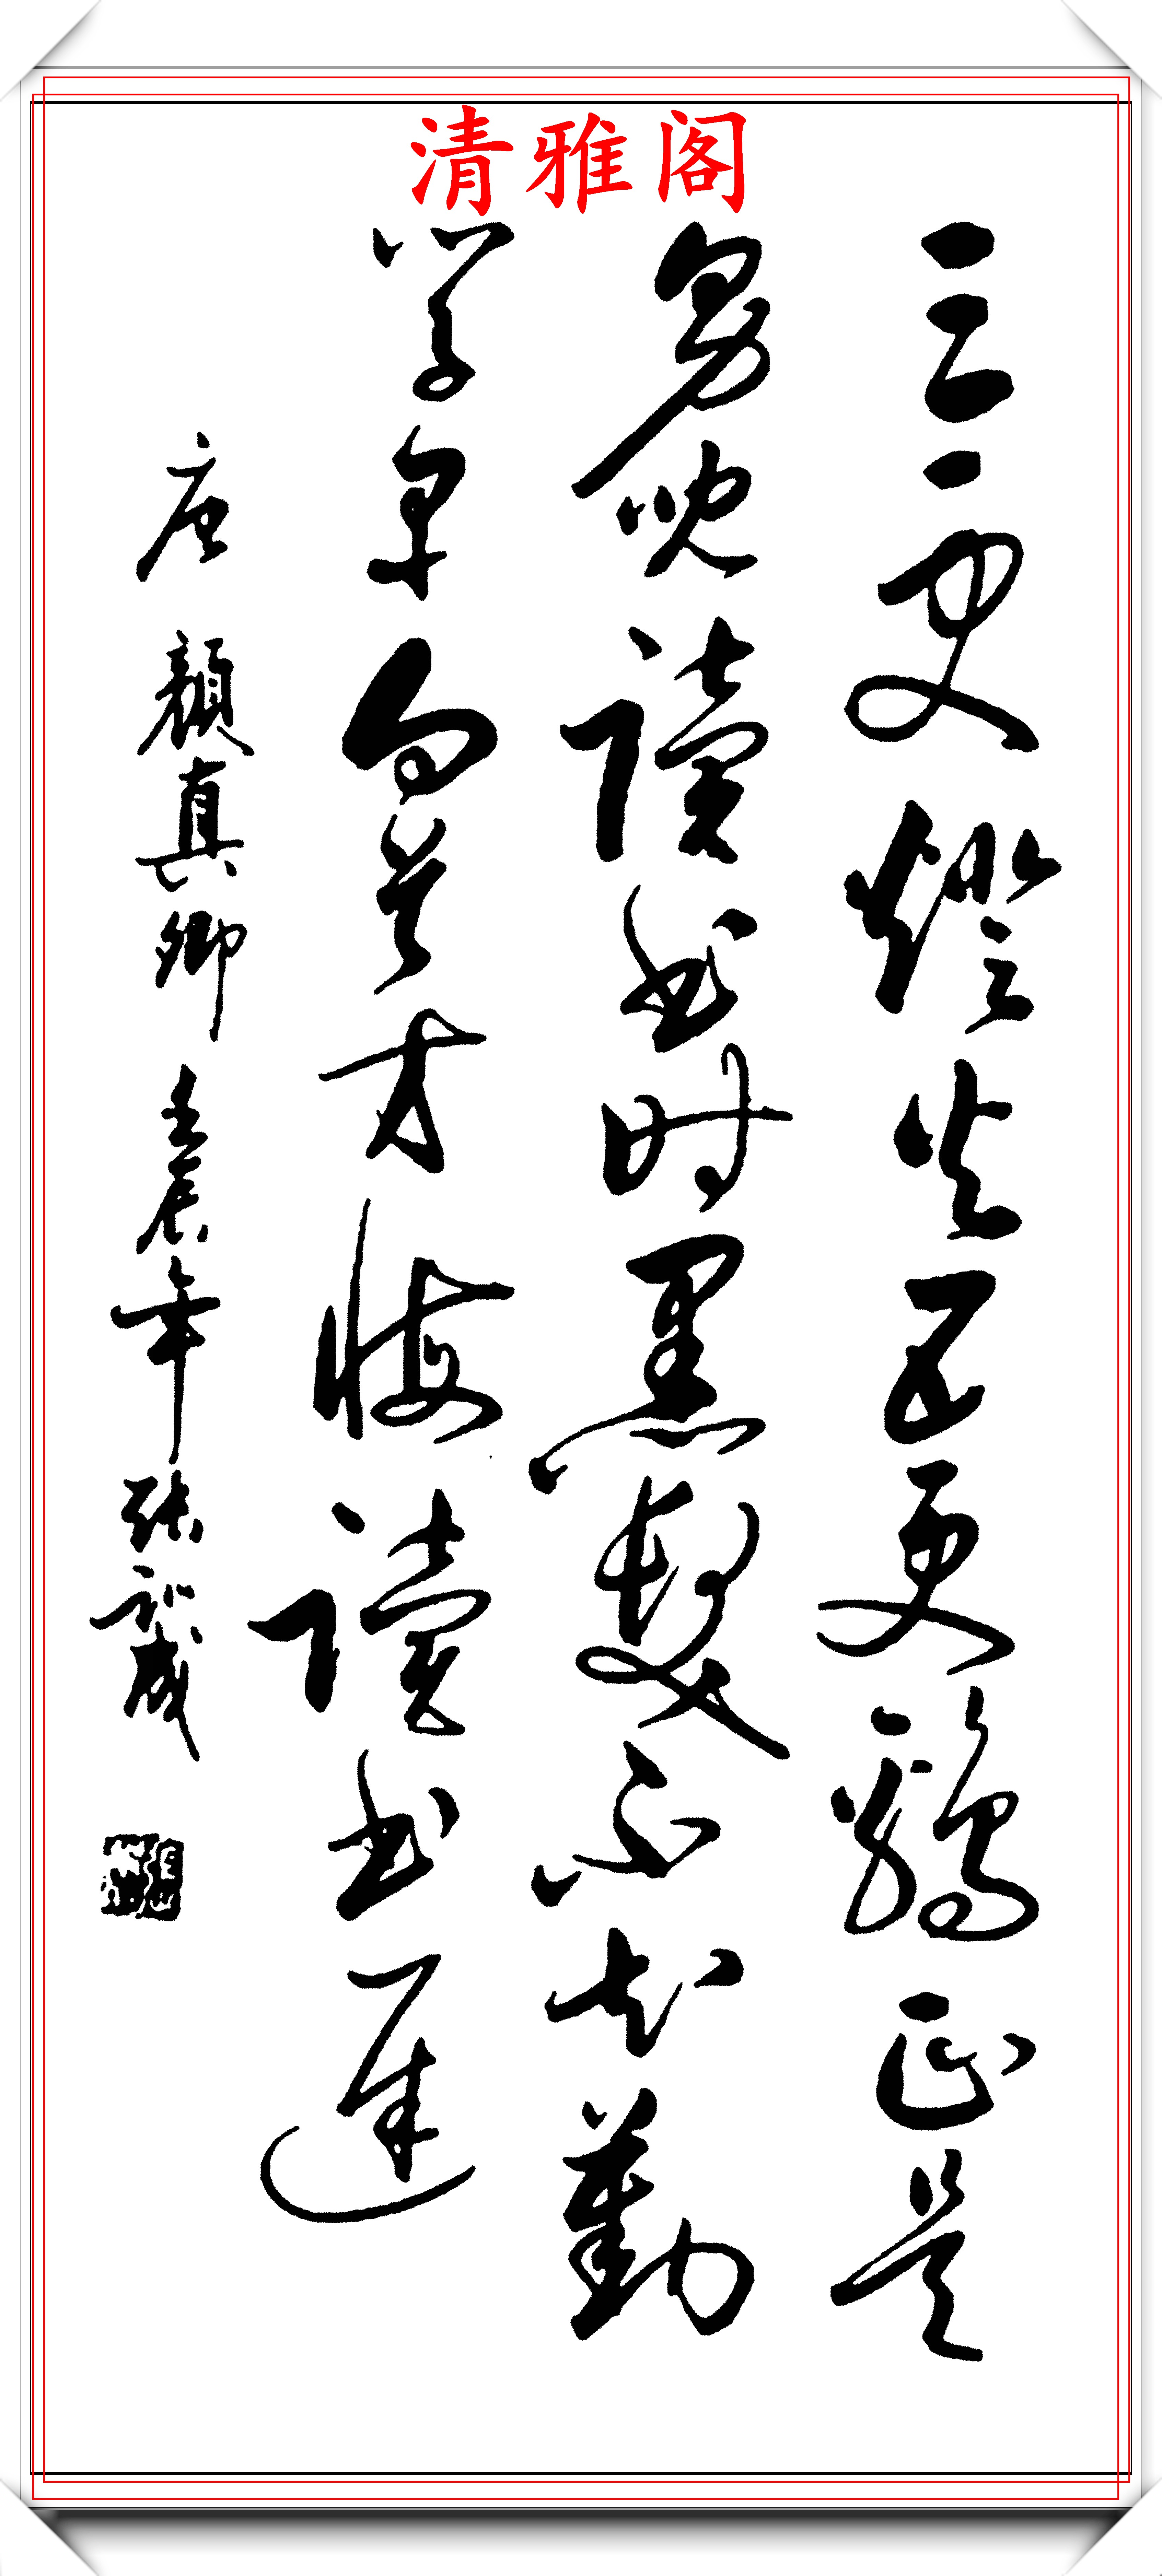 清雅阁
三更燈火五更鷄正是
男儿读书时黑髮不知勤
学早白首方悔读书遲
唐 顔真卿 壬辰年 张